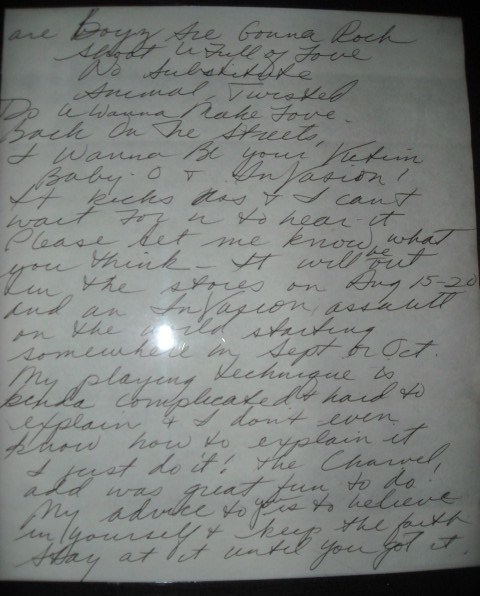 are Boyz Are Gonna Rock
Shoot U Full of Love
No Substitute
Animal, Twisted
Do U Wanna Make Love.
Back On The Streets,
I Wanna Be Your Victim
Baby-O & InVasion!
It kicks Ass & I can't
wait for u to hear it
Please let me know what
you think - It will be out
in the stores on Aug 15-20
and an InVasion assault
on the world starting
somewhere in Sept or Oct.
My playing technique is
kinda complicated & hard to
explain & I don't even
know how to explain it
I just do it! The Charvel,
add was great fun to do
My advice to you is to believe
in yourself & keep the faith
Stay at it until you got it.